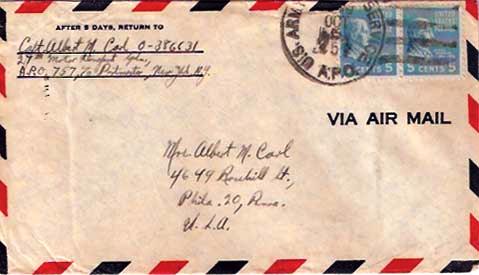 AFTER 5 DAYS, RETURN TO
Capt. Albert M. Carl O-386631
27th Motor Transport
A.P.O. 757, c/o Postmaster, New York N.Y.
U.S. ARMY
A.P.O.
5 CENTS 5
VIA AIR MAIL
Mrs. Albert M. Carl
4649 Rosehill St.,
Phila. 20, Penna.
U.S.A.